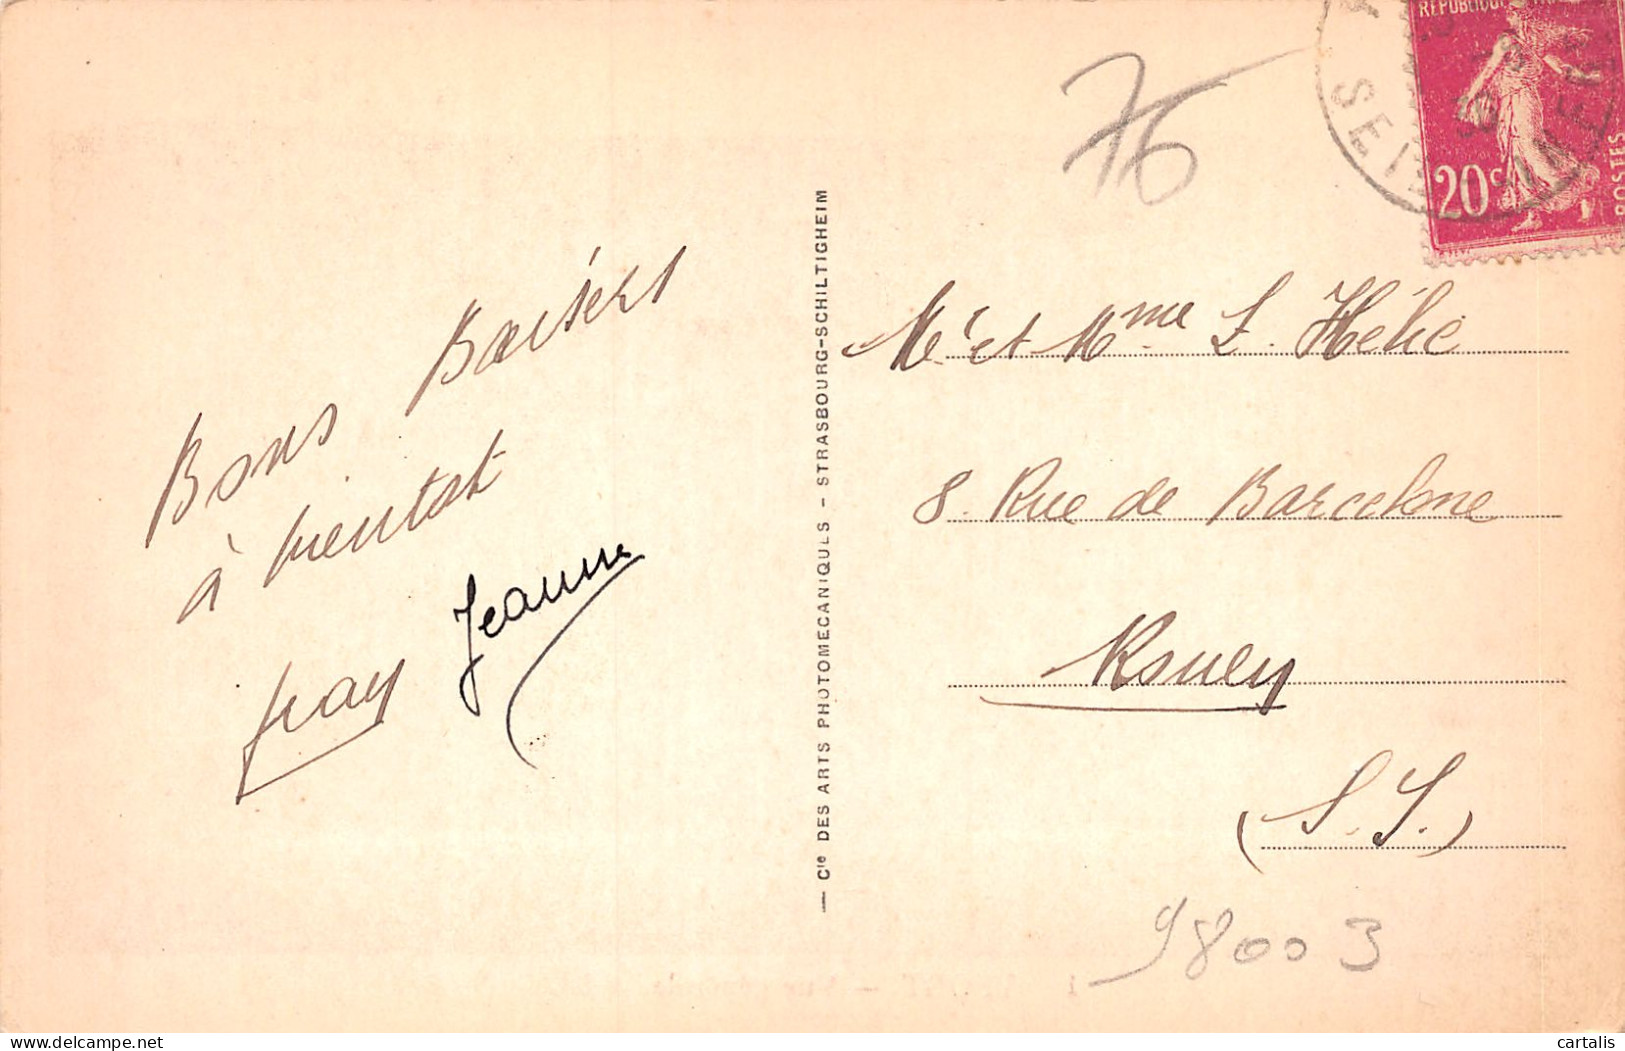 Bons Baisers
à bientot
Jeanne
76
RÉPUBLIQUE
20c
POSTES
SEINE
— Cie DES ARTS PHOTOMECANIQUES - STRASBOURG-SCHILTIGHEIM —
Mr et Mme L. Hélie
8. Rue de Barcelone
Rouen
(S. I.)
98003
cartalis